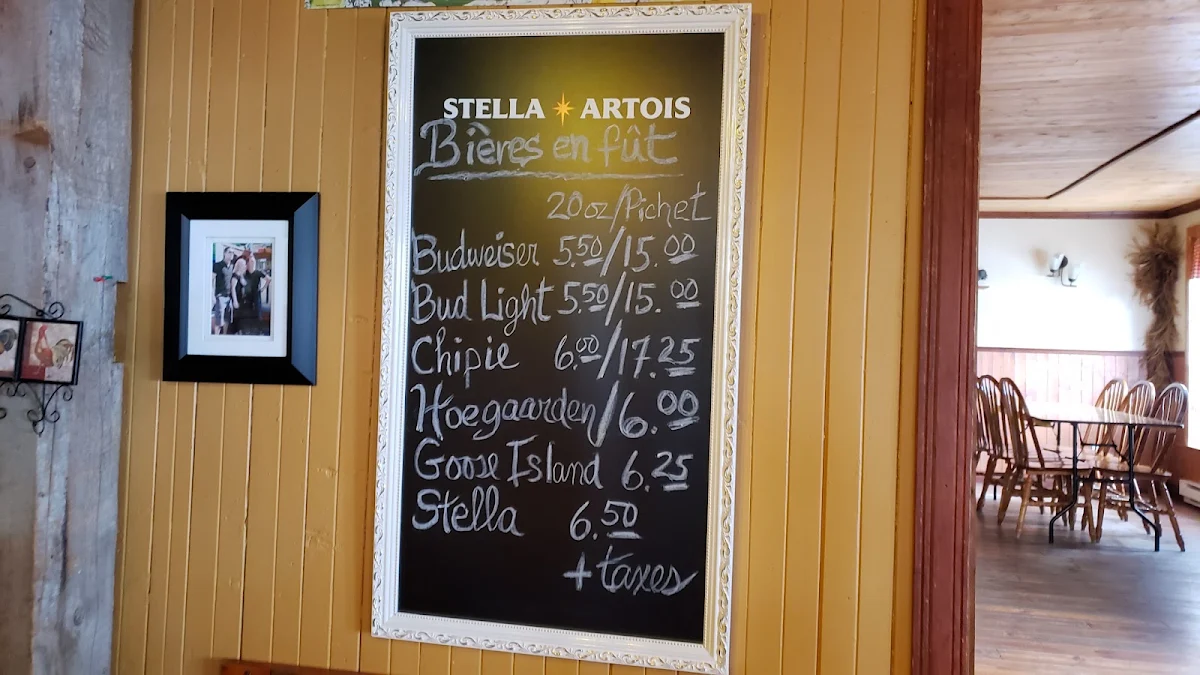 STELLA ARTOIS
Bières en fût
20oz/Pichet
Budweiser 5.50/15.00
Bud Light 5.50/15.00
Chipie 6.00/17.25
Hoegaarden/6.00
Goose Island 6.25
Stella 6.50
+ taxes